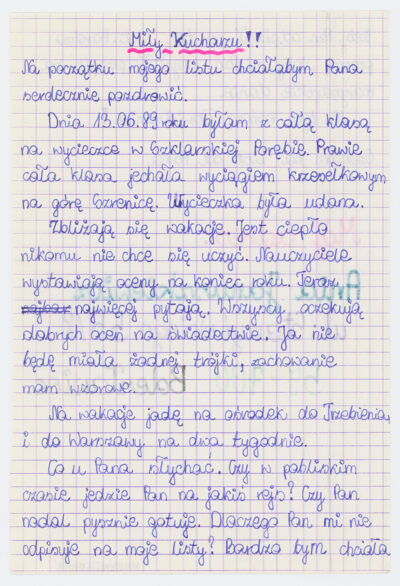 Miły Kucharzu!!
Na początku mojego listu chciałabym Pana
serdecznie pozdrowić.
Dnia 13.06.89 roku byłam z całą klasą
na wycieczce w Szklarskiej Porębie. Prawie
cała klasa jechała wyciągiem krzesełkowym
na górę Szrenicę. Wycieczka była udana.
Zbliżają się wakacje. Jest ciepło
nikomu nie chce się uczyć. Nauczyciele
wystawiają oceny na koniec roku. Teraz
najwięcej pytają. Wszyscy oczekują
dobrych ocen na świadectwie. Ja nie
będę miała żadnej trójki, zachowanie
mam wzorowe.
Na wakacje jadę na ośrodek do Trzebienia,
i do Warszawy na dwa tygodnie.
Co u Pana słychać. Czy w pobliskim
czasie jedzie Pan na jakiś rejs? Czy Pan
nadal pysznie gotuje. Dlaczego Pan mi nie
odpisuje na moje listy? Bardzo bym chciała